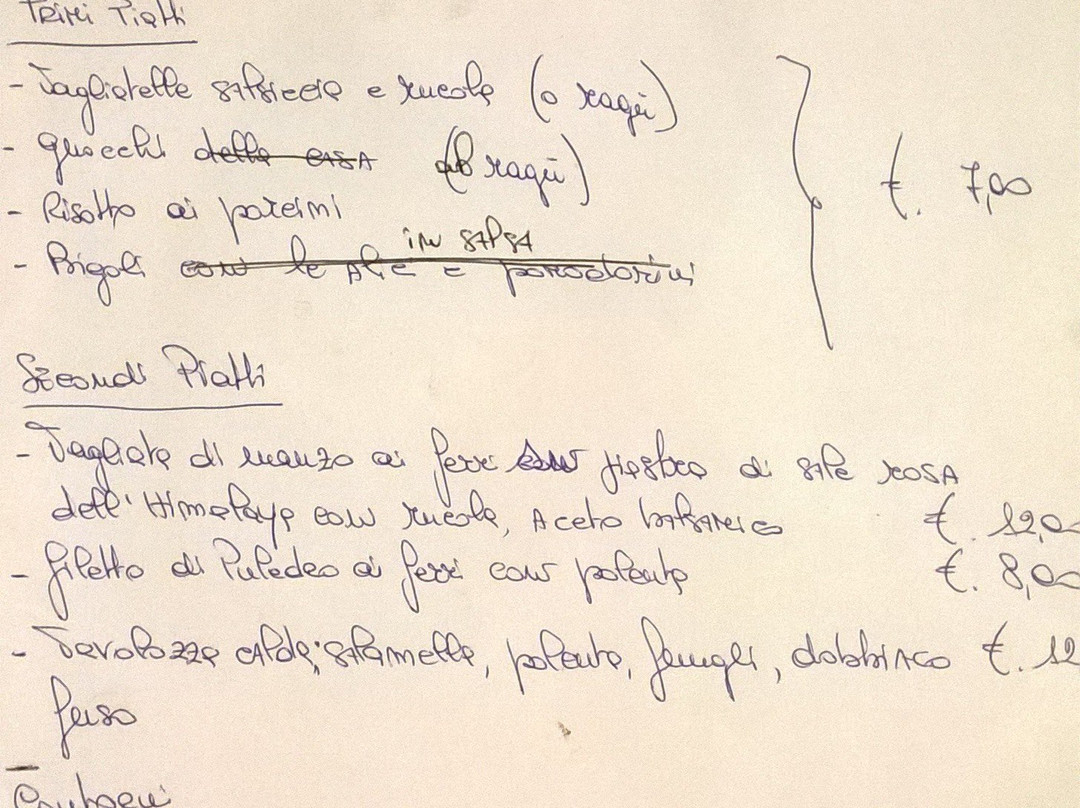 Primi Piatti
- Tagliatelle salsiccia e rucola (o ragù)
- gnocchi della casa (al ragù)
- Risotto ai porcini
in salsa
- Bigoli con le alie e pomodorini
€. 7,00
Secondi Piatti
- Tagliata di manzo ai ferri con piastra di sale rosa
dell'Himalaya con rucola, Aceto balsamico €. 12,0
- filetto di Puledro ai ferri con polenta €. 8,00
- Tavolozza calda: salamella, polenta, funghi, dobbiaco €. 12
fuso
Contorni